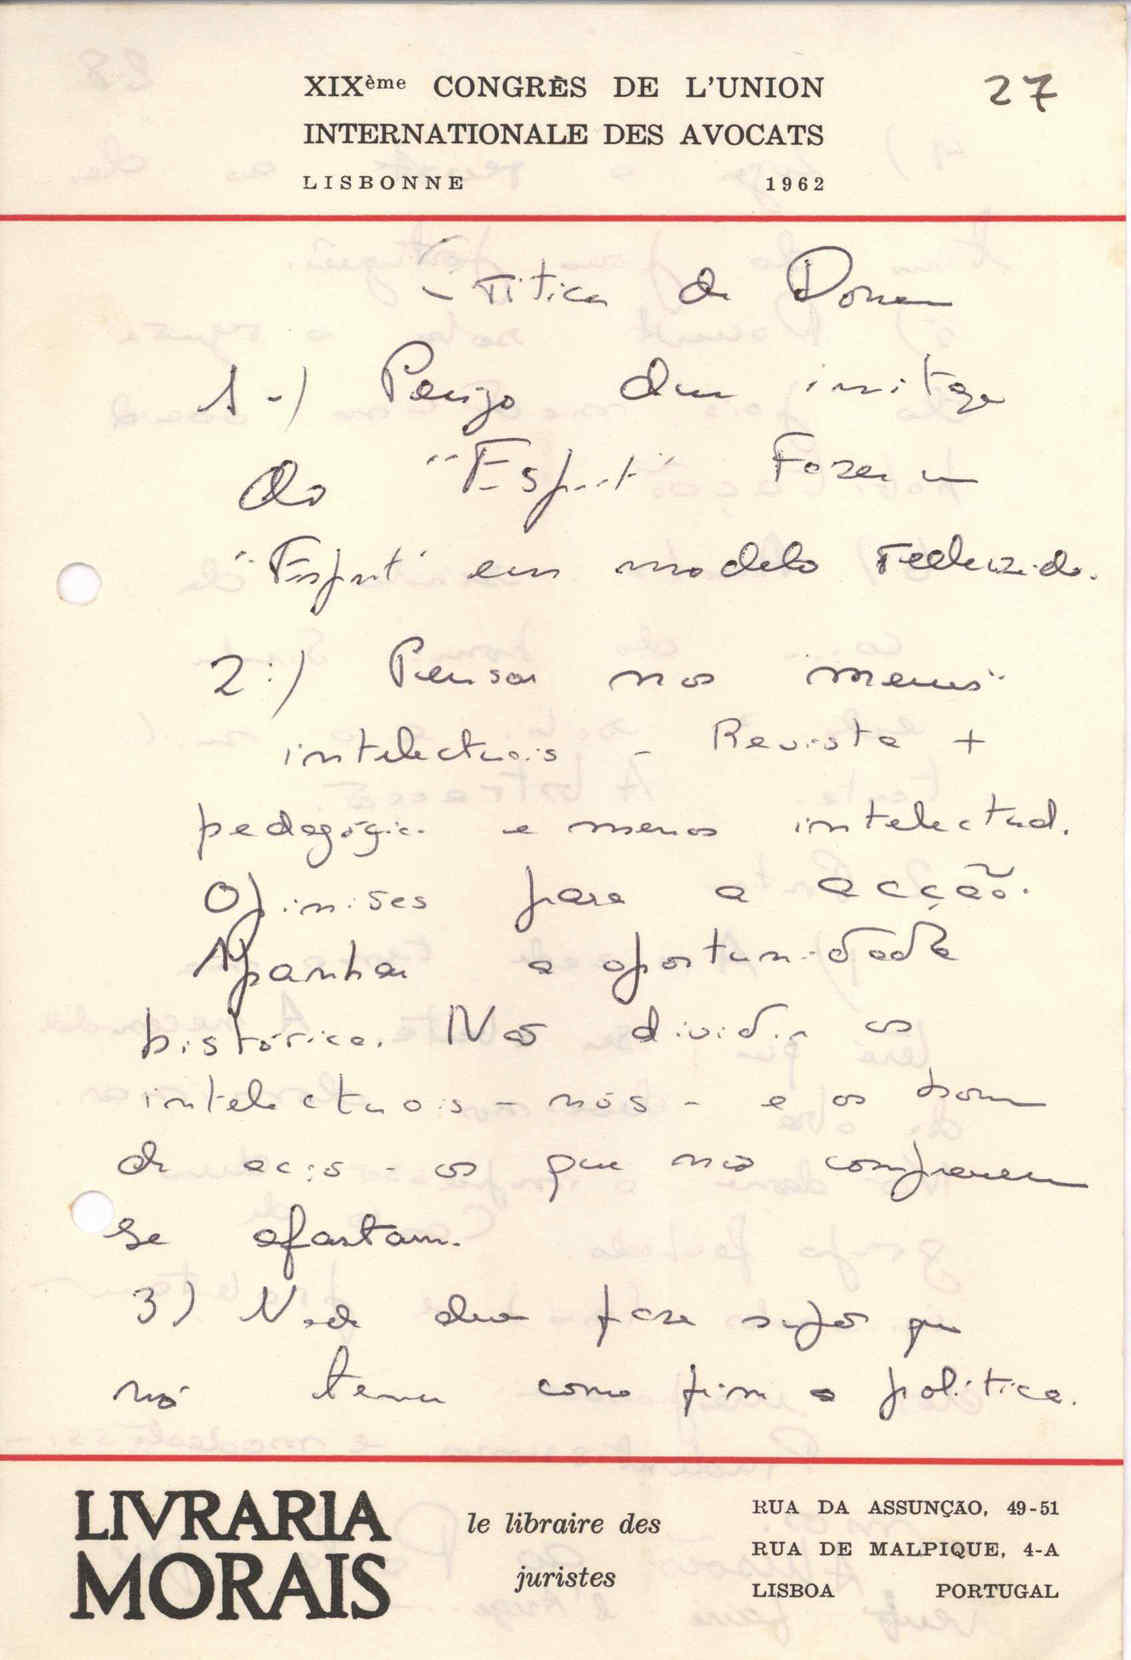 XIXème CONGRÈS DE L'UNION
INTERNATIONALE DES AVOCATS
LISBONNE 1962
27
Crítica de
1-) Perigo dum imitação
do "Esprit" Fazer um
"Esprit" em modelo reduzido.
2:) Pensar nos menos
intelectuais - Revista +
pedagógica e menos intelectual.
Opiniões para a acção.
Apanhar a oportunidade
histórica. Não dividir os
intelectuais - nós - e os hom
de acção - os que não comprem
se afastam.
3) Nada deve fazer supor que
não temos como fim a política.
LIVRARIA
MORAIS
le libraire des
juristes
RUA DA ASSUNÇÃO, 49-51
RUA DE MALPIQUE, 4-A
LISBOA PORTUGAL